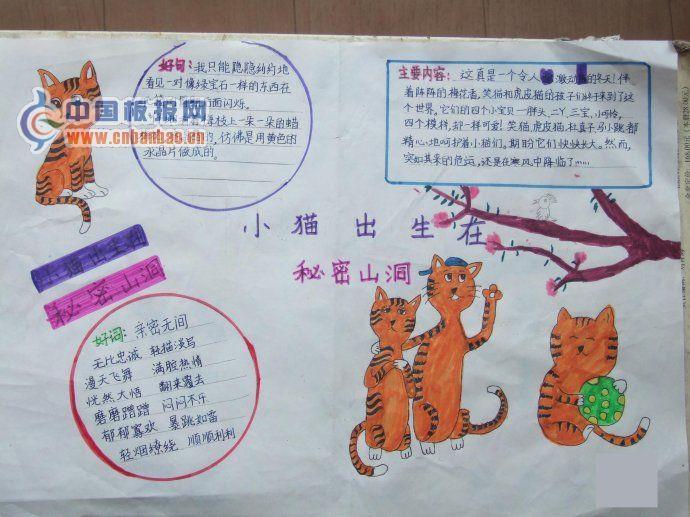 好句：我只能隐隐约约地
看见一对像绿宝石一样的东西在
面闪烁。
枝上一朵一朵的蜡
的，仿佛是用黄色的
水晶片做成的。
中国板报网
www.cnbanbao.cn
主要内容：这真是一个令人激动的冬天！伴
着阵阵的梅花香，笑猫和虎皮猫的孩子们终于来到了这
个世界，它们的四个小宝贝——胖头、二丫、三宝、小可怜，
四个模样，却一样可爱！笑猫、虎皮猫、杜真子、马小跳，都
精心地呵护着小猫们，期盼它们快快长大。然而，
突如其来的危运，还是在寒风中降临了……
小猫出生在
秘密山洞
小猫出生在
秘密山洞
好词：亲密无间
无比忠诚 轻描淡写
漫天飞舞 满腔热情
恍然大悟 翻来覆去
磨磨蹭蹭 闷闷不乐
郁郁寡欢 暴跳如雷
轻烟缭绕 顺顺利利